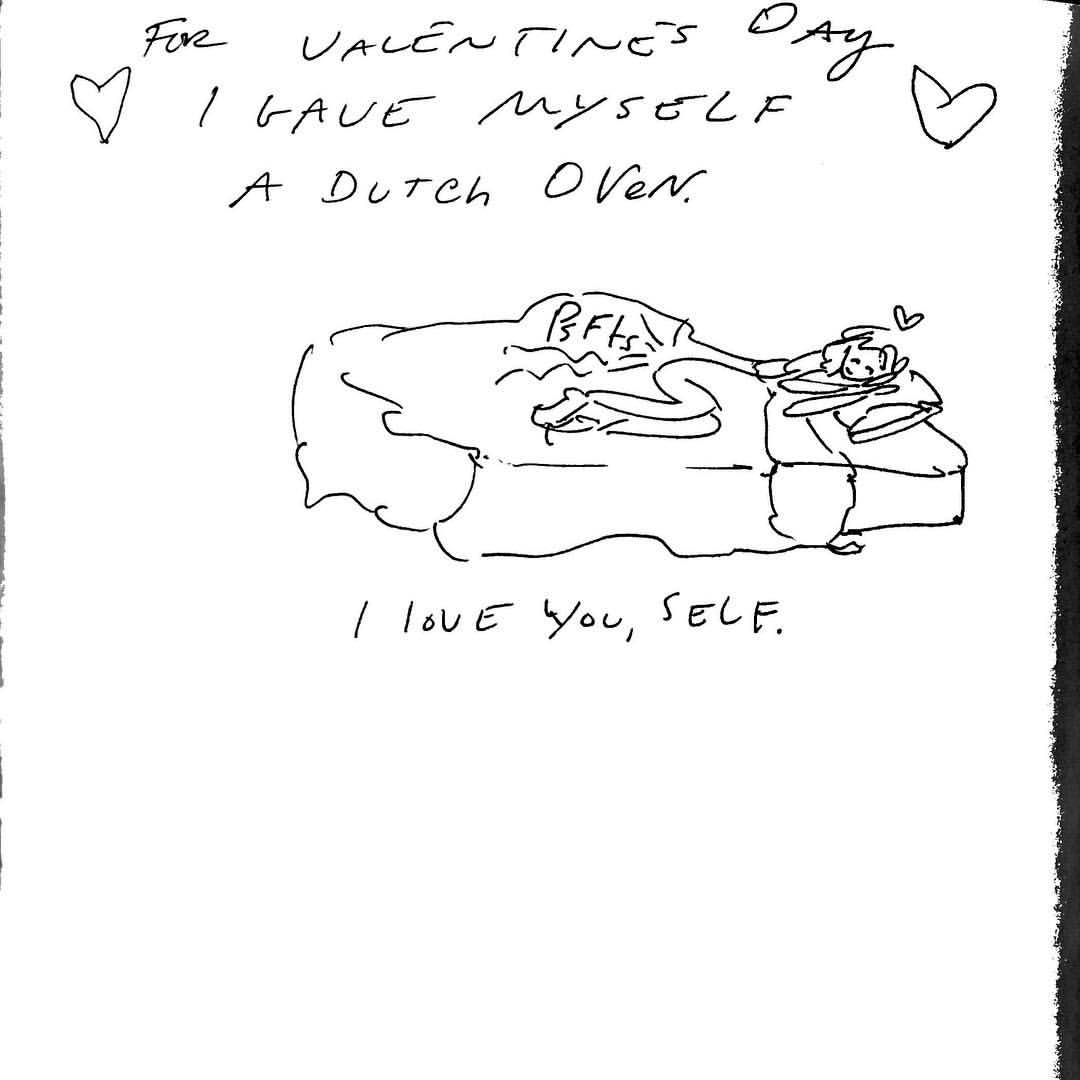 FOR VALENTINE'S DAY
I GAVE MYSELF
A DUTCH OVEN.
PsFfs
I lOVE YOU, SELF.